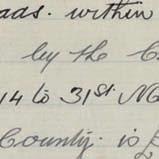 within
by the
14 to 31st.
County. is